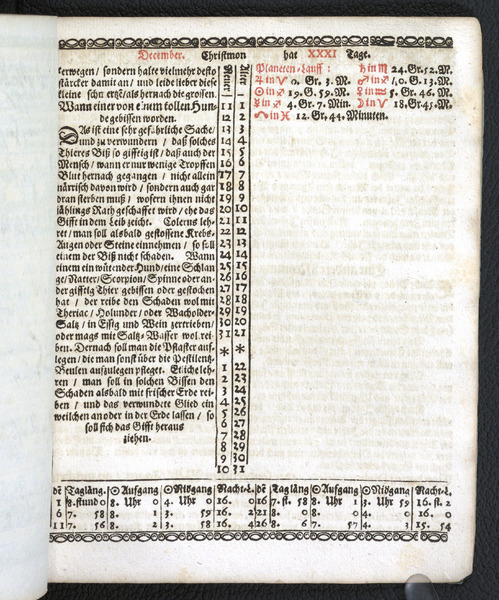 December. Christmon hat XXXI Tage.
erwegen / sondern halte vielmehr desto
stärcker damit an / und leide lieber diese
kleine schmertz / als hernach die grossen.
Wann einer von einem tollen Hun-
de gebissen worden.
DAs ist eine sehr gefährliche Sache /
und zu verwundern / daß solches
Thieres Biß so gifftig ist / daß auch der
Mensch / wann er nur wenige Tropffen
Blut hernach gegangen / nicht allein
närrisch davon wird / sondern auch gar
dran sterben muß / wofern ihnen nicht
jählings Rath geschaffet wird / ehe das
Gifft in dem Leib zeicht. Colerus leh-
ret / man soll alsbald gestossene Krebs-
Augen oder Steine einnehmen / so soll
einem der Biß nicht schaden. Wann
einem ein wütender Hund / eine Schlan-
ge / Natter / Scorpion / Spinne oder an-
der gifftig Thier gebissen oder gestochen
hat / der reibe den Schaden wol mit
Theriac / Holunder / oder Wacholder-
Saltz / in Essig und Wein zertrieben /
oder mags mit Saltz-Wasser wol rei-
ben. Dernach soll man die Pflaster auf-
legen / die man sonst über die Pestilentz-
Beulen aufzulegen pfleget. Etliche leh-
ren / man soll in solchen Bissen den
Schaden alsbald mit frischer Erde rei-
ben / und das verwundete Glied ein
weilchen an oder in der Erde lassen / so
soll sich das Gifft heraus
ziehen.
Neuer Alter
11 1
12 2
13 3
14 4
15 5
16 6
17 7
18 8
19 9
20 10
21 11
22 12
23 13
24 14
25 15
26 16
27 17
28 18
29 19
30 20
31 21
* *
1 22
2 23
3 24
4 25
5 26
6 27
7 28
8 29
9 30
10 31
Planeten-Lauff: ♄ in ♏ 24. Gr. 52. M.
♃ in ♈ 0. Gr. 3. M. ♂ in ♐ / 0. G. 13. M.
☉ in ♐ 19. G. 59. M. ♀ in ♒ 5. Gr. 46. M.
☿ in ♐ 4. Gr. 7. Min. ☽ in ♈ 18. Gr. 45. M.
☊ in ♓ 12. Gr. 44. Minuten.
dē Tagläng. ☉ Aufgang ☉ Nidgang Nacht-L. dē Tagläng ☉ Aufgang ☉ Nidgang Nacht-L.
1 8. stund 0 8. Uhr 0 4. Uhr 0 16. 0 16 7. st. 58 8. Uhr 1 3. Uhr 59 16. st. 2
6 7. 58 8. 1 3. 59 16. 2 21 8. 0 8. 0 4. 0 16. 0
11 7. 56 8. 2 3. 58 16. 4 26 8. 6 7. 57 4. 3 15. 54